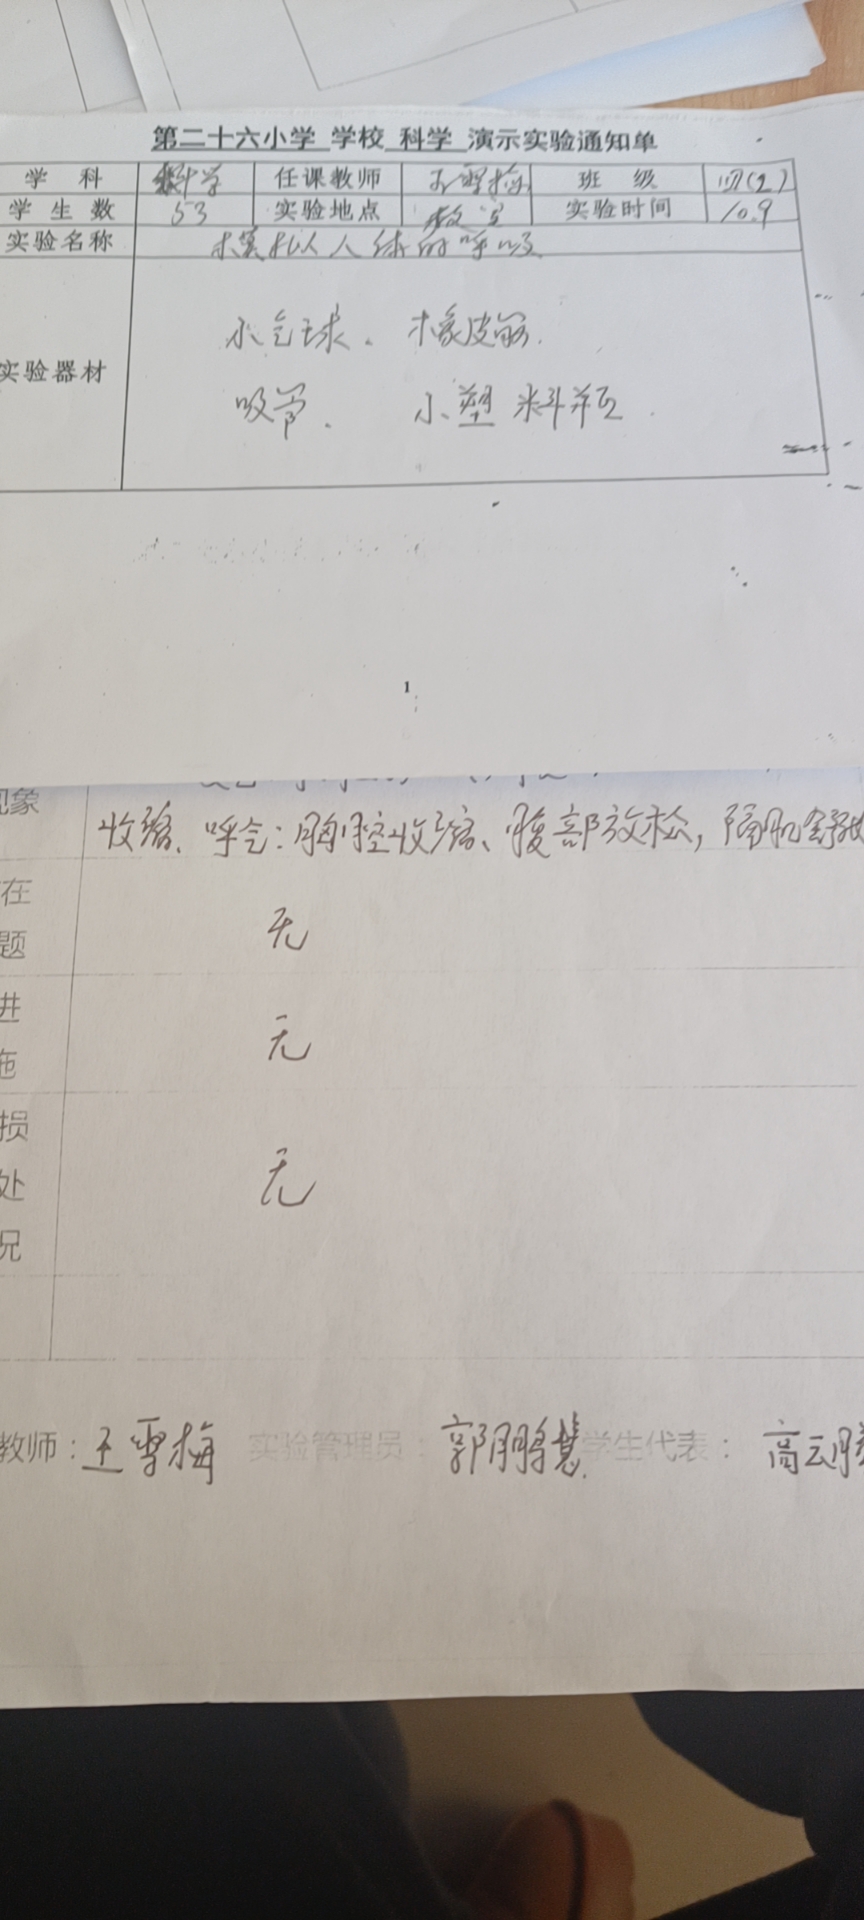 第二十六小学 学校 科学 演示实验通知单
学 科 科学 任课教师 王雪梅 班 级 四(2)
学 生 数 53 实验地点 教室 实验时间 10.9
实验名称 模拟人体的呼吸
实验器材
小气球、橡皮筋、
吸管、小塑料瓶
1
现象
收缩、呼气:胸腔收缩、腹部放松,隔肌舒
在
题 无
进
施 无
损
处 无
况
教师:王雪梅 实验管理员: 郭鹏慧 学生代表: 高云